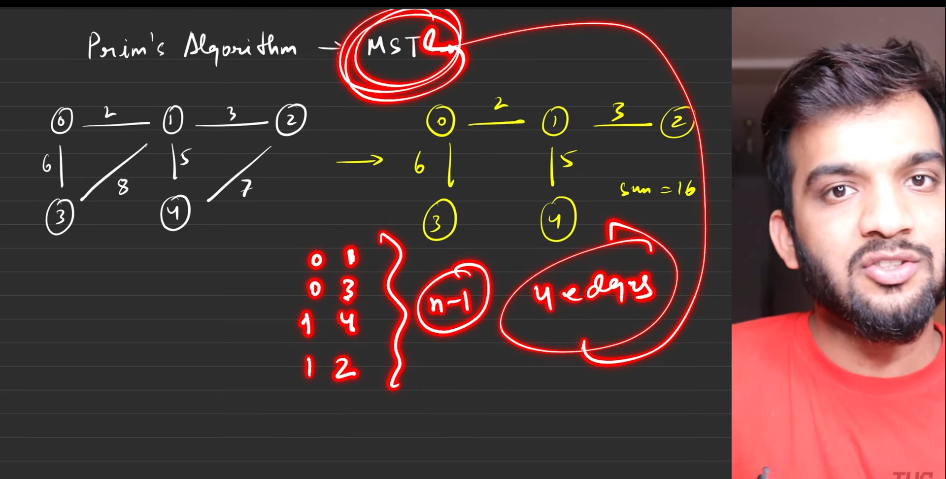 Prim's Algorithm → MST
0 2 1 3 2
6 8 5 7
3 4
→
0 2 1 3 2
6 5
sum = 16
3 4
0 1
0 3
1 4
1 2
n-1
4 edges